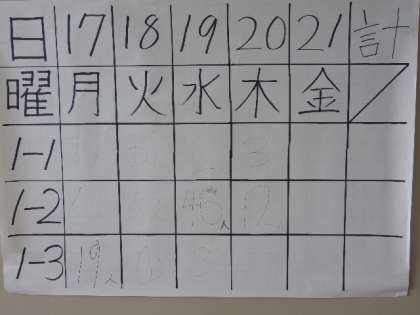 日 17 18 19 20 21 計
曜 月 火 水 木 金
1-1 3
1-2 12
1-3 19人